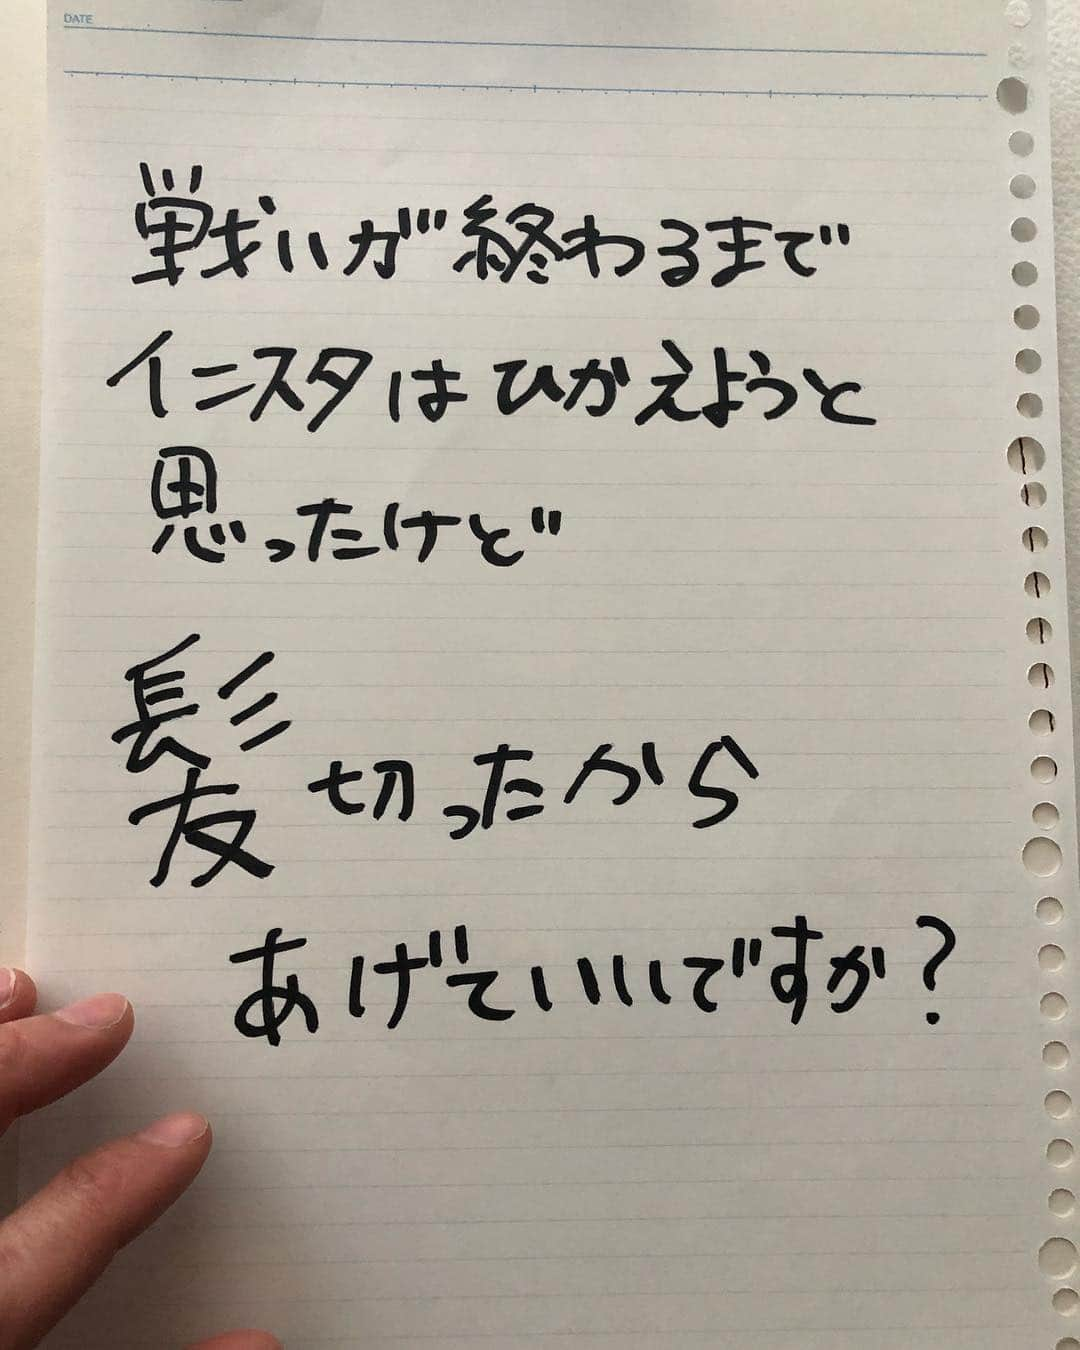 DATE
戦いが終わるまで
インスタはひかえようと
思ったけど
髪切ったから
あげていいですか?